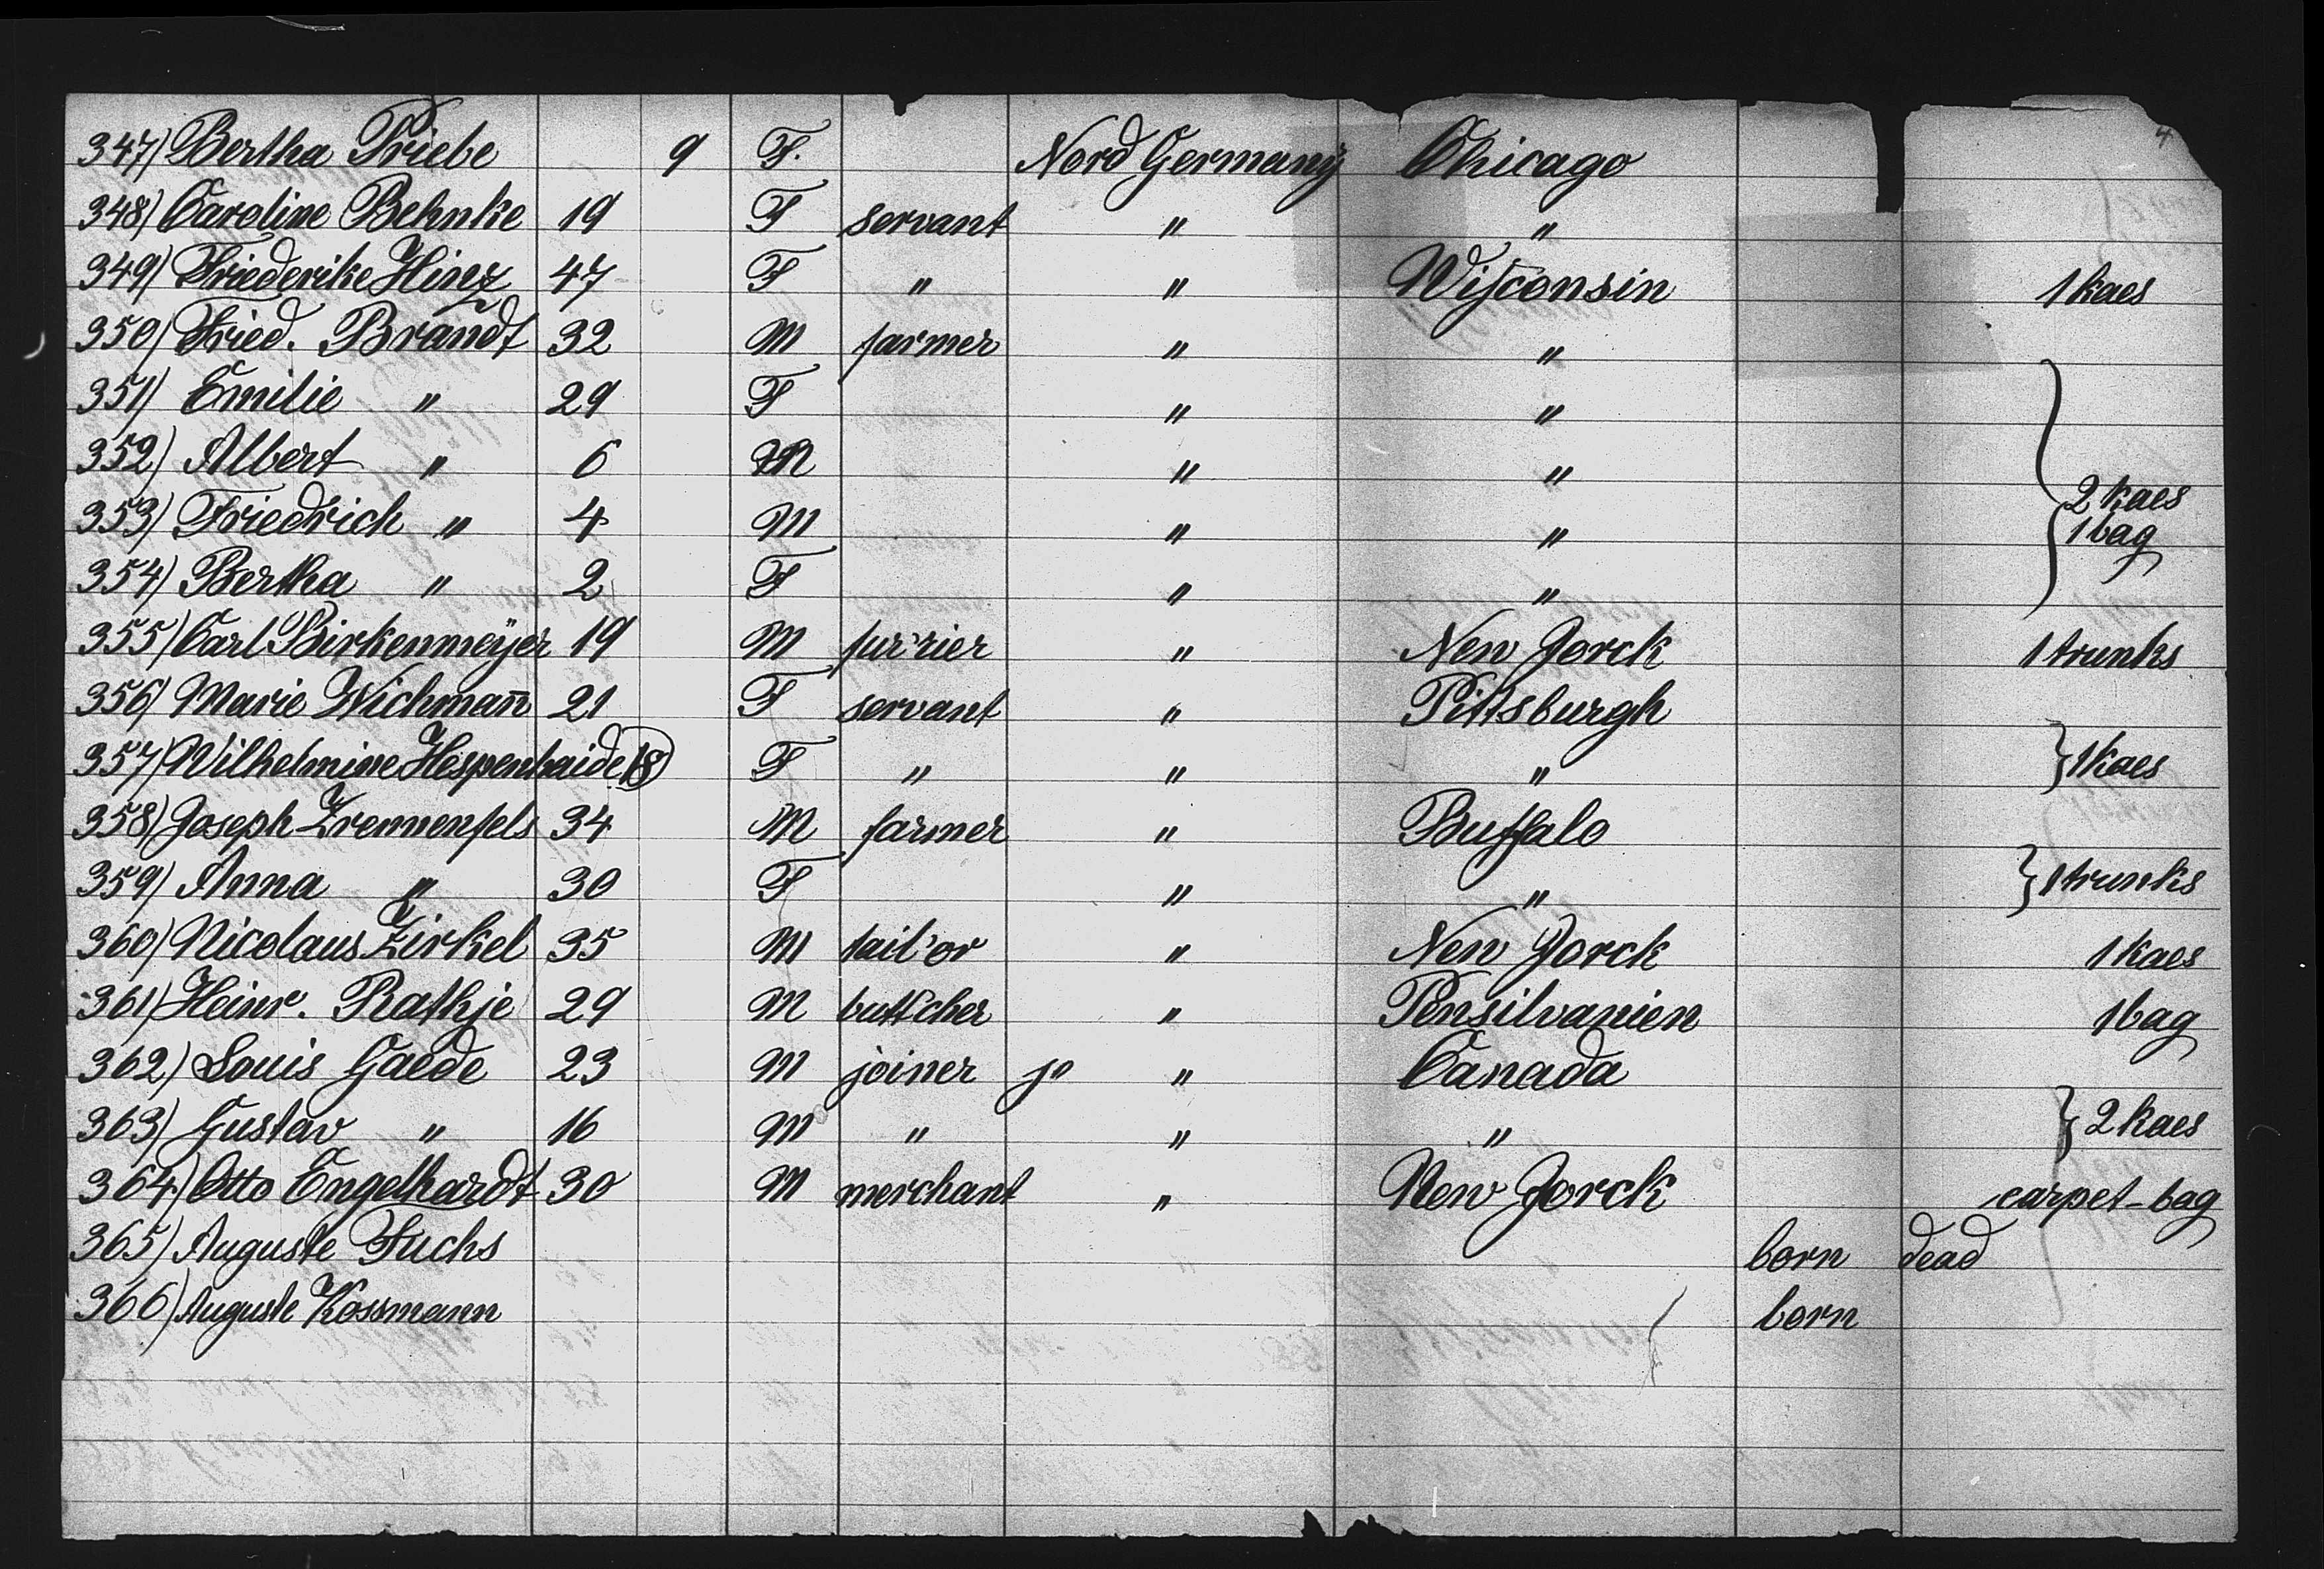 347) Bertha Priebe 9 F. Nord Germany Chicago
348) Caroline Behnke 19 F servant " "
349) Friederike Hinz 47 F " " Wisconsin 1 kaes
350) Fried. Brandt 32 M farmer " "
351) Emilie " 29 F " "
352) Albert " 6 M " "
353) Friedrich " 4 M " " 2 kaes
1 bag
354) Bertha " 2 F " "
355) Carl Birkenmeÿer 19 M fur'rier " New Jorck 1 trunks
356) Marie Wichmañ 21 F servant " Pittsburgh
357) Wilhelmine Hespenhaide 18 F " " " 1 kaes
358) Joseph Zrennenfels 34 M farmer " Buffalo
359) Anna " 30 F " " 1 trunks
360) Nicolaus Zirkel 35 M tail'or " New Jorck 1 kaes
361) Heinr. Rathje 29 M butt'cher " Pensilvanien 1 bag
362) Louis Gaede 23 M joiner jo " Canada
363) Gustav " 16 M " " " 2 kaes
364) Otto Engelhardt 30 M merchant " New Jorck carpet-bag
365) Auguste Fuchs born dead
366) Auguste Kossmann born